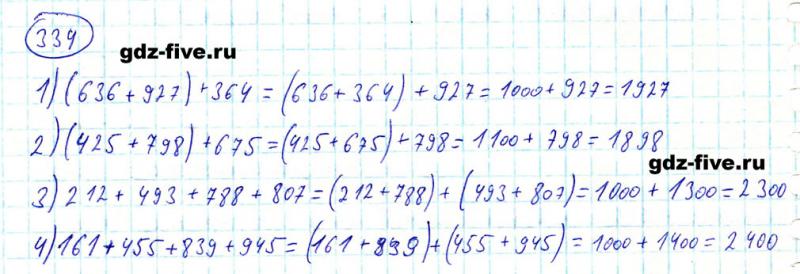 339
gdz-five.ru
1) (636 + 927) + 364 = (636 + 364) + 927 = 1000 + 927 = 1927
2) (425 + 798) + 675 = (425 + 675) + 798 = 1100 + 798 = 1898
gdz-five.ru
3) 212 + 493 + 788 + 807 = (212 + 788) + (493 + 807) = 1000 + 1300 = 2300
4) 161 + 455 + 839 + 945 = (161 + 839) + (455 + 945) = 1000 + 1400 = 2400